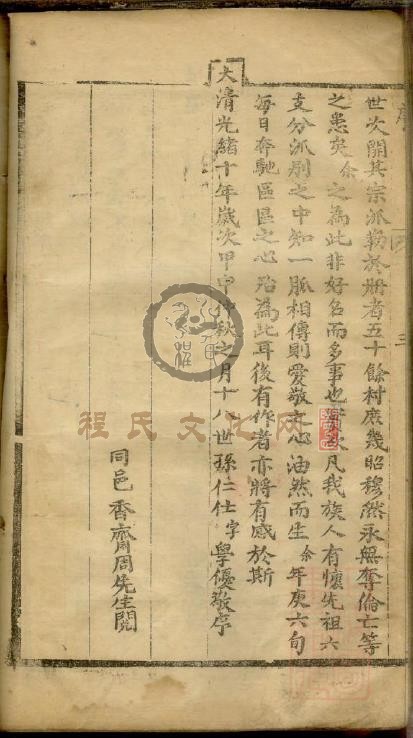 世次開其宗派勒於冊者五十餘村庶幾昭穆然永無奪倫亡等
之患矣余之為此非好名而多事也欲凡我族人有懷先祖六
支分派別之中知一脈相傳則愛敬之心油然而生余年庚六旬
每日奔馳區區之心殆為此耳後有作者亦將有感於斯
大清光緒十年歲次甲申仲秋之月十八世孫仁仕字學優敬序
同邑香齋周先生閱
程氏文化网